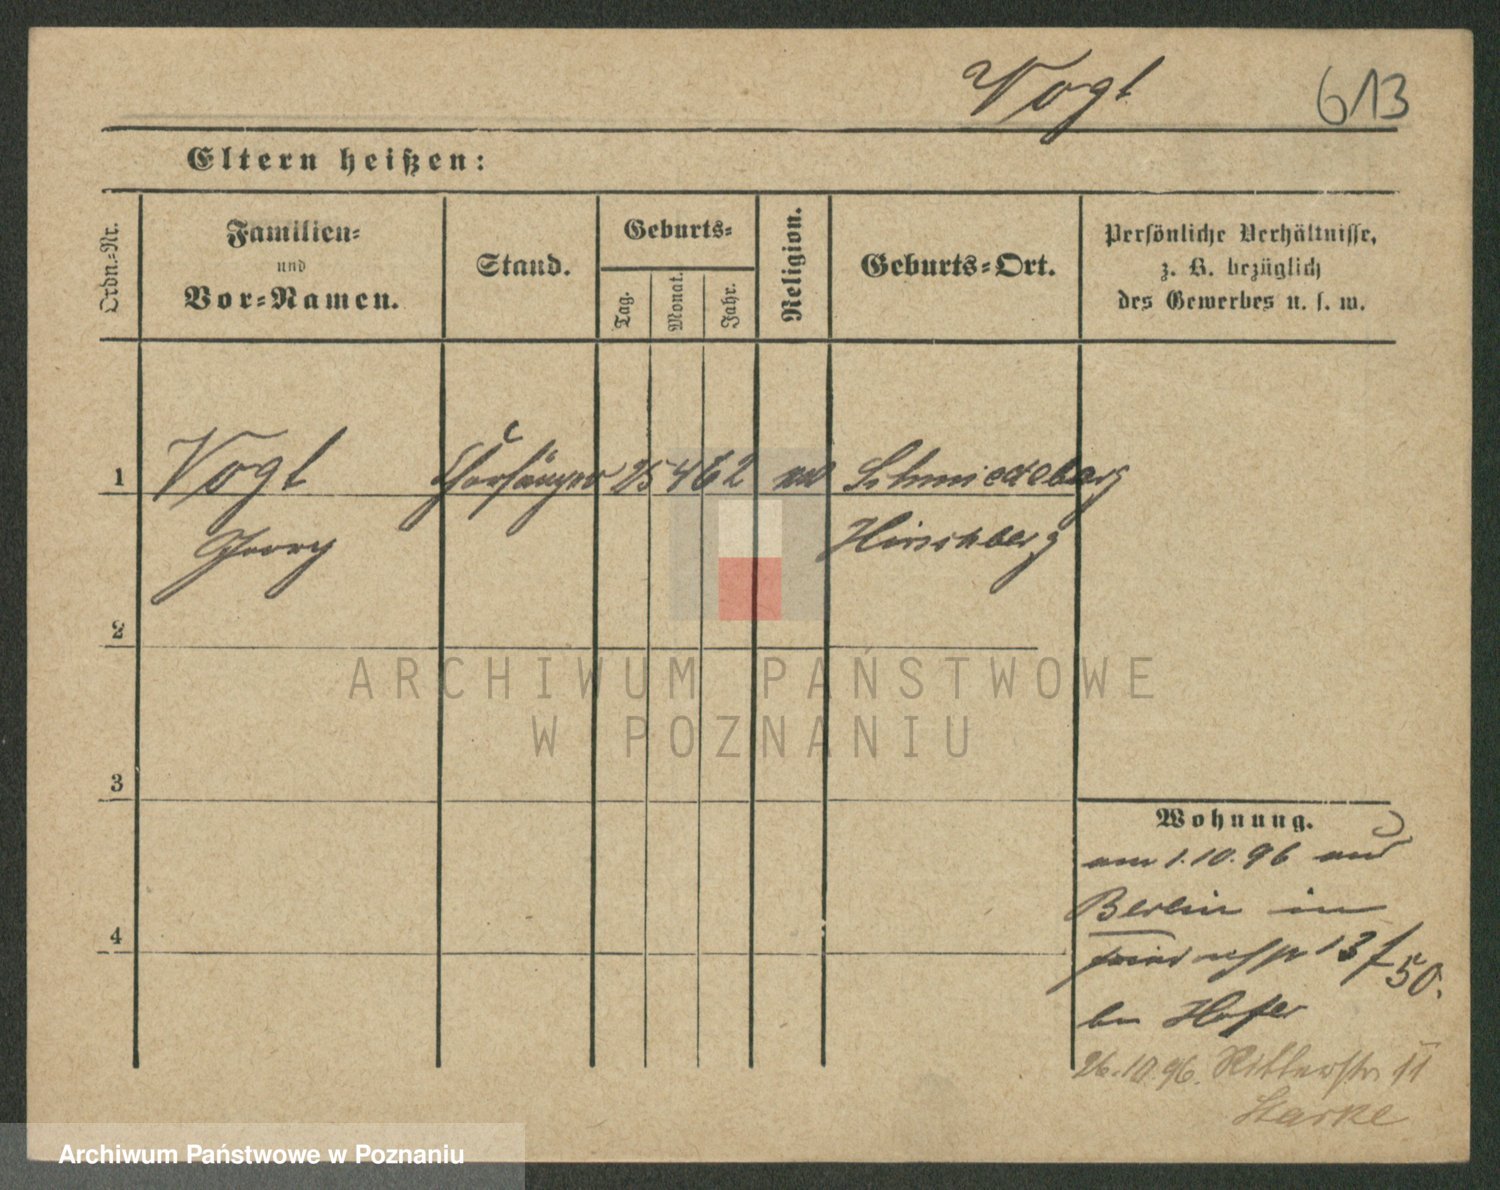 Vogt 613
Eltern heißen:
Ordn.-Nr.
Familien-
und
Vor-Namen.
Stand.
Geburts-
Tag.
Monat.
Jahr.
Religion.
Geburts-Ort.
Persönliche Verhältnisse,
z. B. bezüglich
des Gewerbes u. s. w.
1 Vogt Chorsänger 25 4 62 Schmiedeberg
Georg Hirschberg
2
3
4
Wohnung.
am 1.10.96 aus
Berlin in
13/50.
bei Hofer
26.10.96. Ritterstr. 11
Starke
ARCHIWUM PAŃSTWOWE
W POZNANIU
Archiwum Państwowe w Poznaniu